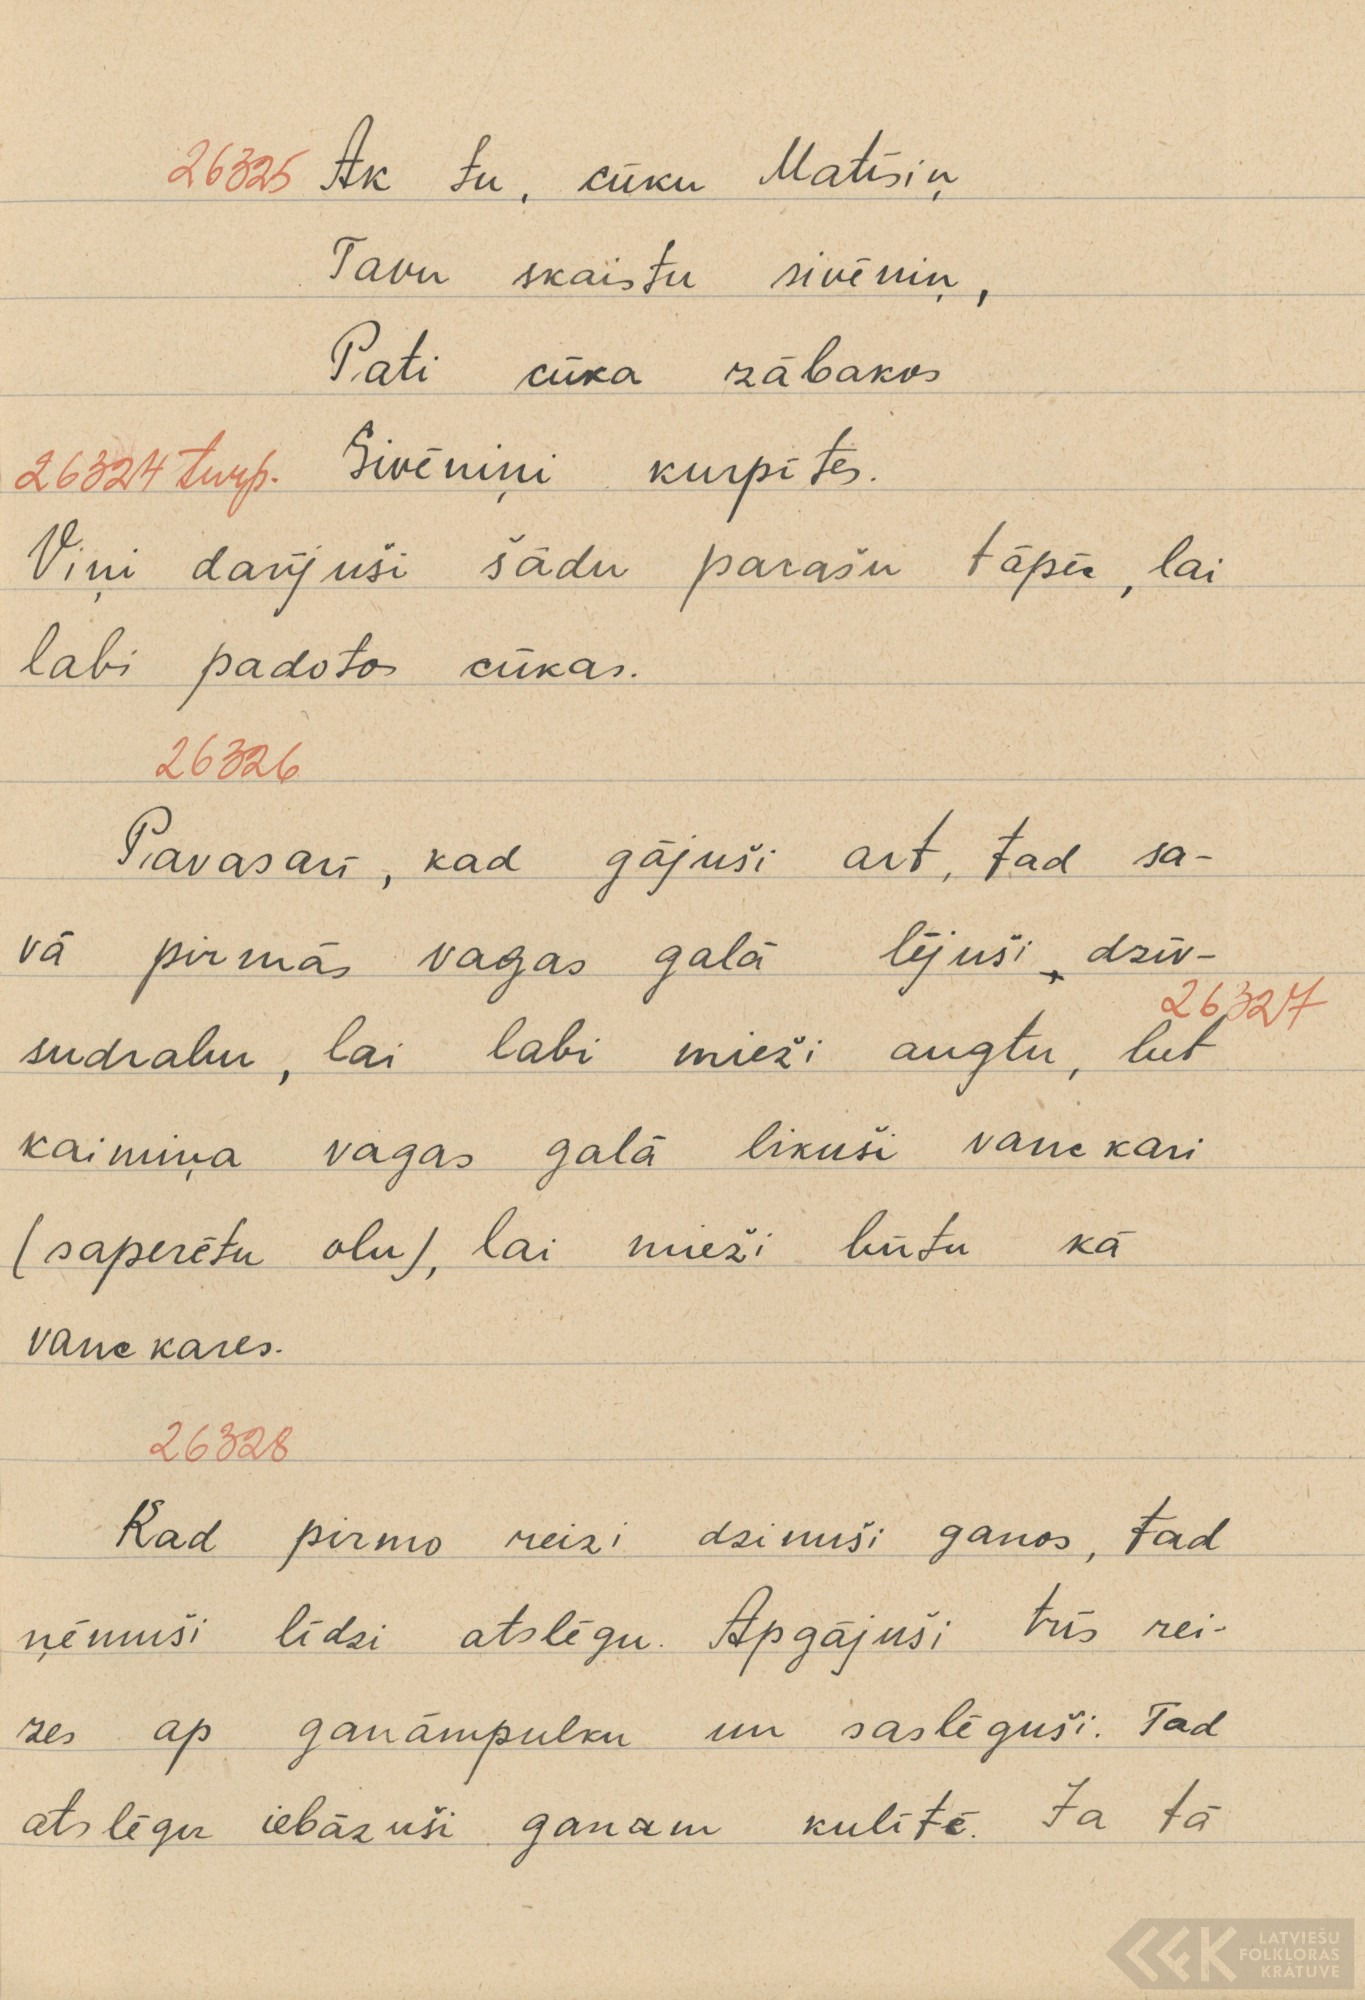 26325 Ak tu, cūku Matīsiņ
Tavu skaistu sivēniņ,
Pati cūka zābakos
26324 turp. Sivēniņi kurpītēs.
Viņi darījuši šādu parašu tāpēc, lai
labi padotos cūkas.
26326
Pavasarī, kad gājuši art, tad sa-
vā pirmās vagas galā lējuši dzīv-
26327
sudrabu, lai labi mieži augtu, bet
kaimiņa vagas galā likuši vanckari
(saperētu olu), lai mieži būtu kā
vanckares.
26328
Kad pirmo reizi dzinuši ganos, tad
ņēmuši līdzi atslēgu. Apgājuši trīs rei-
zes ap ganāmpulku un saslēguši. Tad
atslēgu iebāzuši ganam kulītē. Ja tā
LATVIEŠU
FOLKLORAS
KRĀTUVE